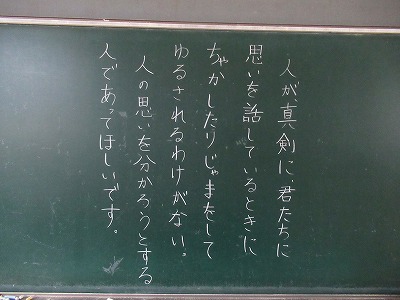 人が、真剣に、君たちに
思いを話しているときに
ちゃかしたりじゃまをして
ゆるされるわけがない。
人の思いを分かろうとする
人であってほしいです。